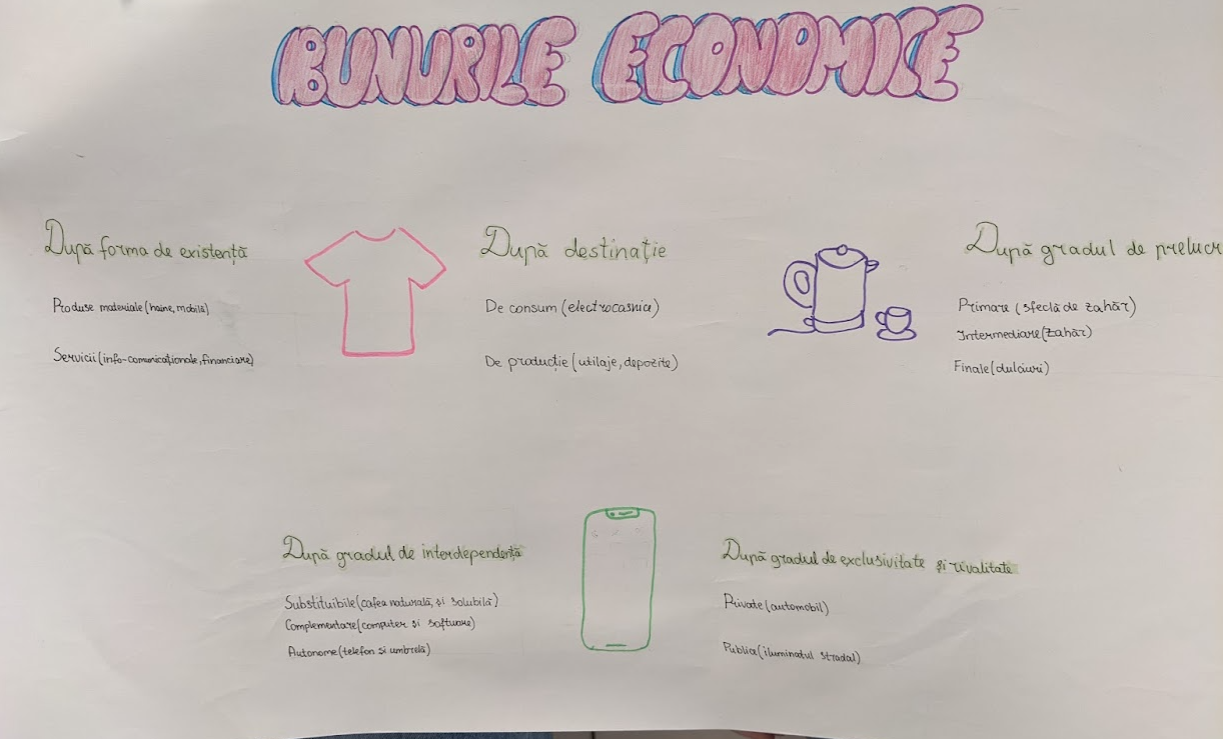 BUNURILE ECONOMICE
După forma de existență
Produse materiale (haine, mobilă)
Servicii (info-comunicaționale, financiare)
După destinație
De consum (electrocasnice)
De producție (utilaje, depozite)
După gradul de prelucr
Primare (sfeclă de zahăr)
Intermediare (zahăr)
Finale (dulciuri)
După gradul de interdependență
Substituibile (cafea naturală, și solubilă)
Complementare (computer și software)
Autonome (telefon si umbrelă)
După gradul de exclusivitate și rivalitate
Private (automobil)
Publice (iluminatul stradal)